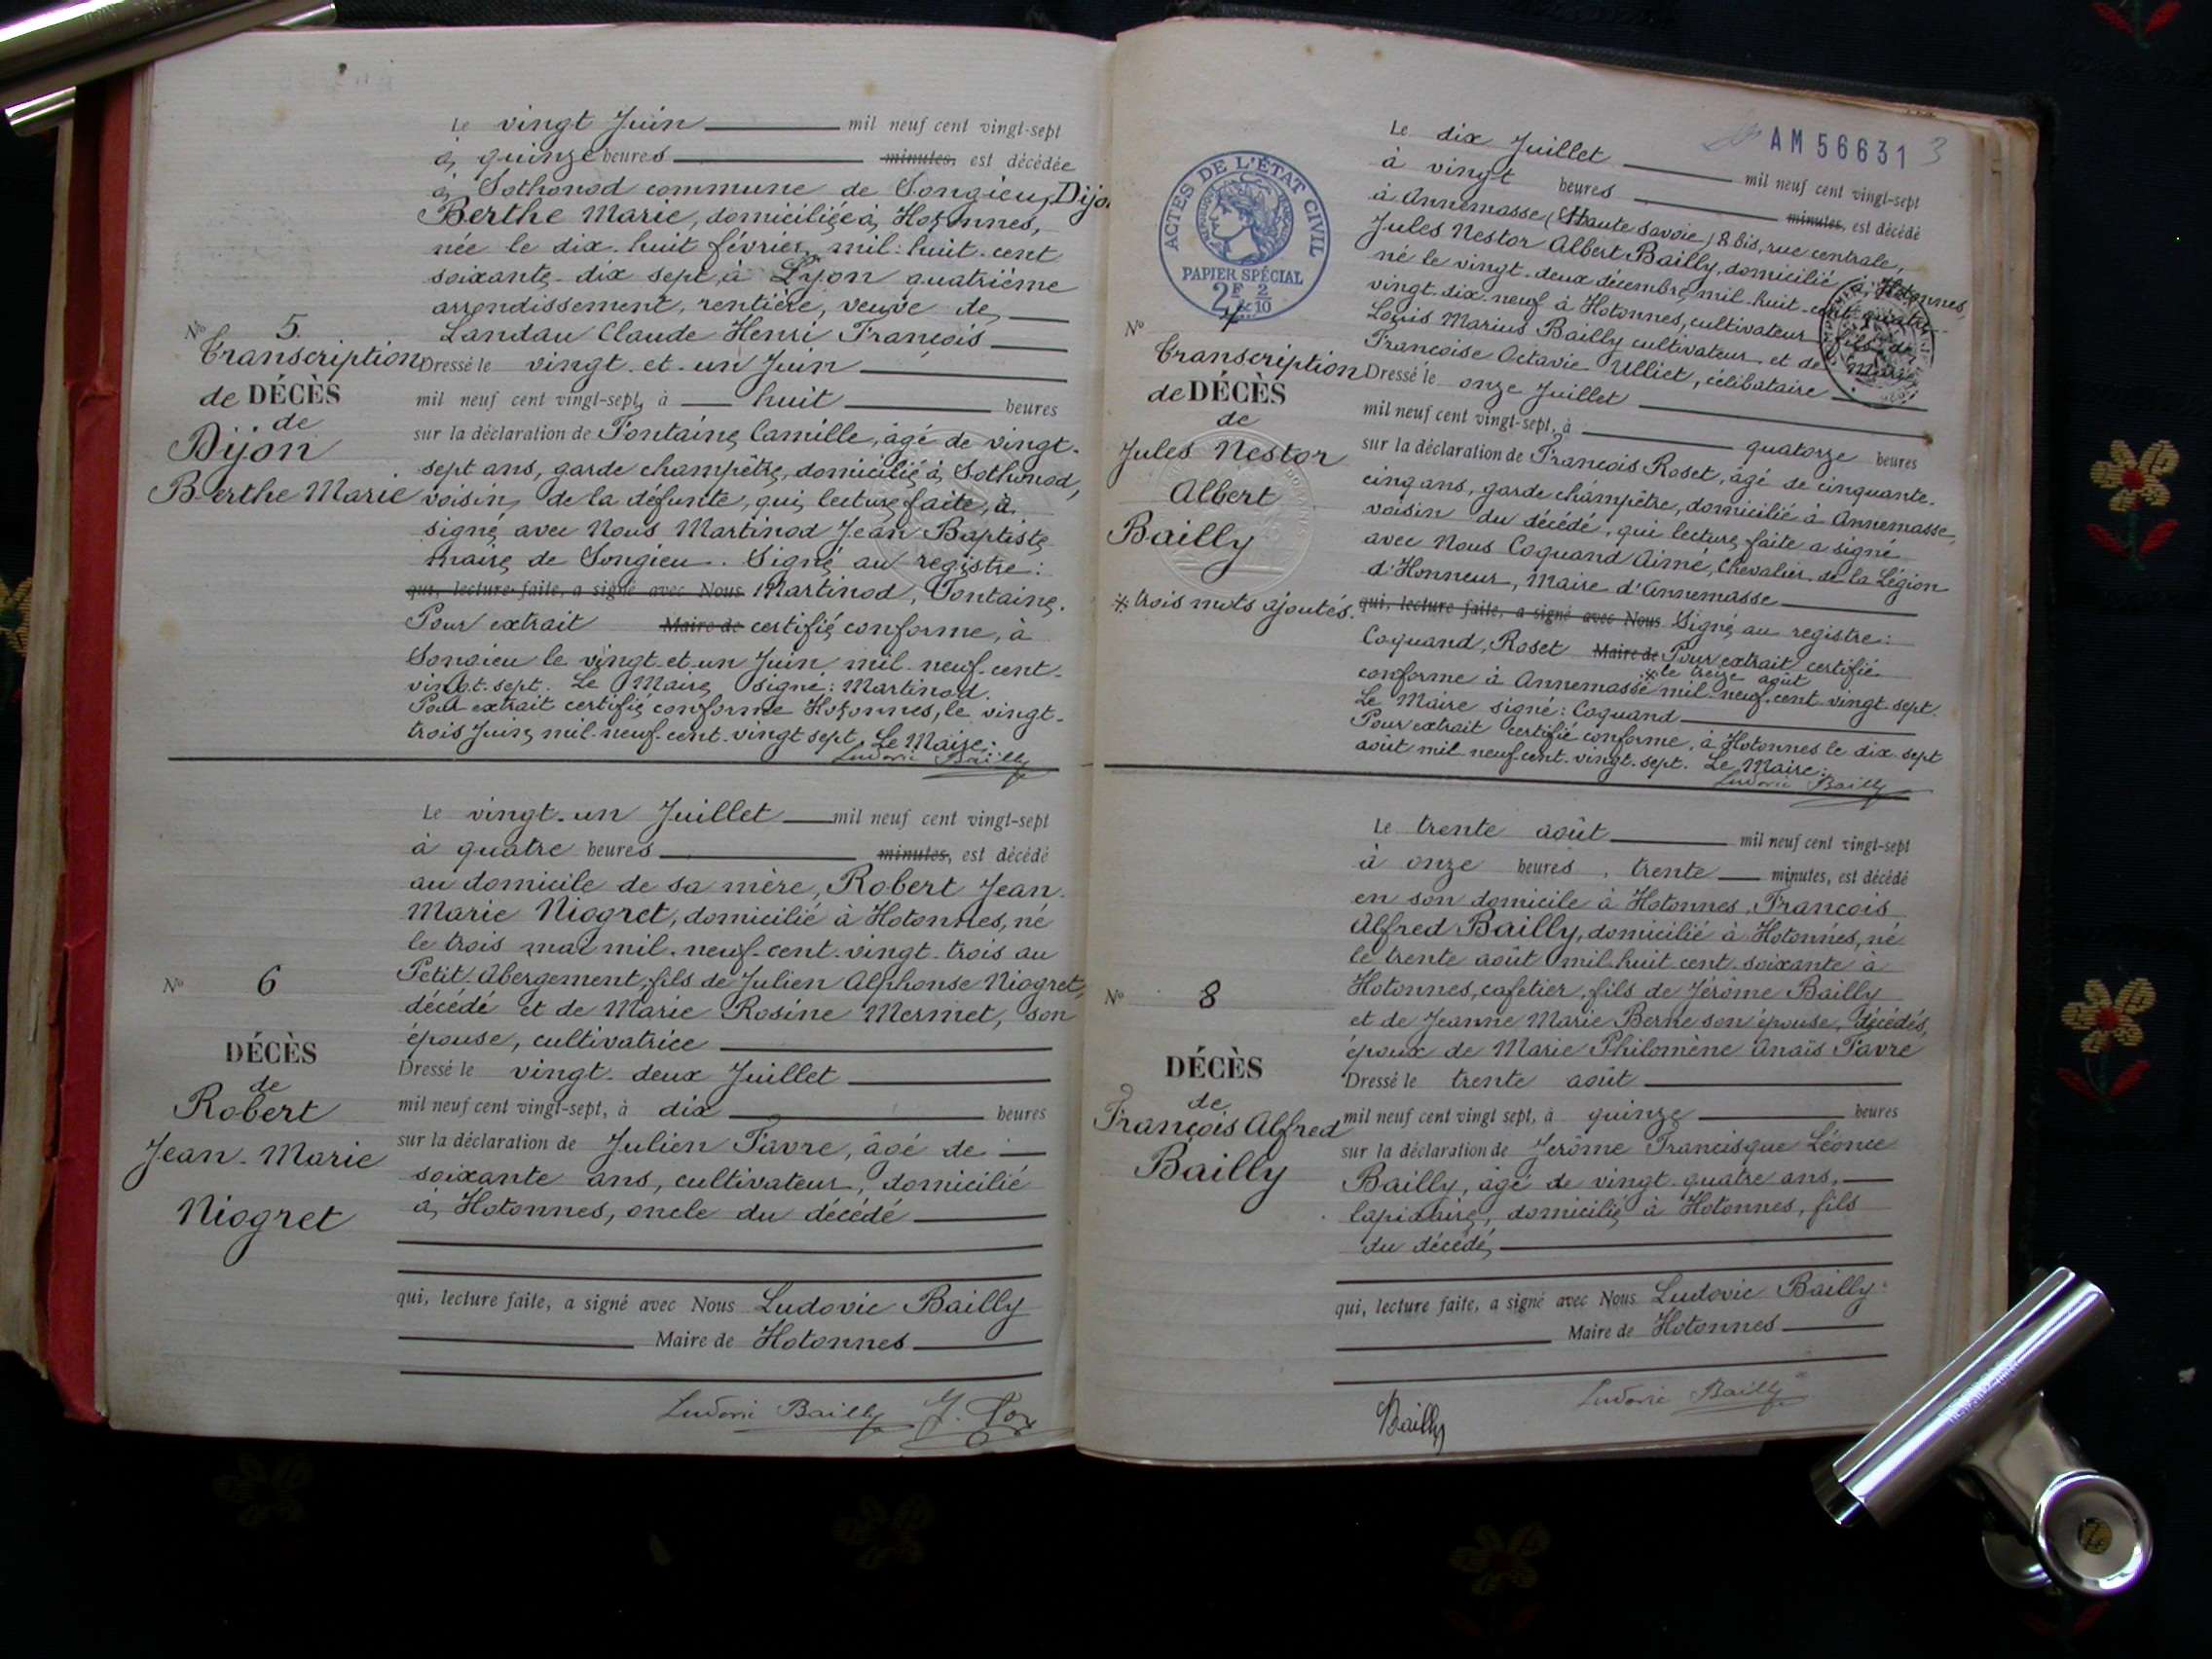 Le vingt Juin mil neuf cent vingt-sept
à quinze heures minutes, est décédée
à Sothonod commune de Songieu, Dijon
Berthe Marie, domiciliée à Hotonnes,
née le dix-huit février mil-huit-cent
soixante-dix sept, à Lyon quatrième
arrondissement, rentière, veuve de
Landau Claude Henri François
Nº 5.
Transcription
de DÉCÈS
de
Dijon
Berthe Marie
Dressé le vingt-et-un Juin
mil neuf cent vingt-sept, à huit heures
sur la déclaration de Fontaine Camille, âgé de vingt-
sept ans, garde champêtre, domicilié à Sothonod,
voisin de la défunte, qui, lecture faite, a
signé avec Nous Martinod Jean Baptiste
maire de Songieu. Signé au registre:
qui, lecture faite, a signé avec Nous Martinod, Fontaine.
Pour extrait Maire de certifié conforme, à
Songieu le vingt-et-un Juin mil-neuf-cent-
vingt-sept. Le Maire signé: Martinod.
Pour extrait certifié conforme Hotonnes, le vingt-
trois Juin mil-neuf-cent-vingt sept. Le Maire:
Ludovic Bailly
Le vingt-un Juillet mil neuf cent vingt-sept
à quatre heures minutes, est décédé
au domicile de sa mère, Robert Jean-
Marie Niogret, domicilié à Hotonnes, né
le trois mai mil-neuf-cent-vingt-trois au
Petit-Abergement, fils de Julien Alphonse Niogret,
décédé et de Marie Rosine Mermet, son
épouse, cultivatrice
Nº 6
DÉCÈS
de
Robert
Jean-Marie
Niogret
Dressé le vingt-deux Juillet
mil neuf cent vingt-sept, à dix heures
sur la déclaration de Julien Favre, âgé de
soixante ans, cultivateur, domicilié
à Hotonnes, oncle du décédé
qui, lecture faite, a signé avec Nous Ludovic Bailly
Maire de Hotonnes
Ludovic Bailly
AM 56631 3
ACTES DE L'ÉTAT CIVIL
PAPIER SPÉCIAL
2F 2/10
Le dix Juillet mil neuf cent vingt-sept
à vingt heures minutes, est décédé
à Annemasse (Haute Savoie) 8 bis, rue centrale,
Jules Nestor Albert Bailly, domicilié à Hotonnes,
né le vingt-deux décembre mil-huit-cent-quatre-
vingt-dix-neuf à Hotonnes, cultivateur fils de
Louis Marius Bailly cultivateur et de Marie
Françoise Octavie Ulliet, célibataire
Nº 7
Transcription
de DÉCÈS
de
Jules Nestor
Albert
Bailly
* trois mots ajoutés.
Dressé le onze Juillet
mil neuf cent vingt-sept, à quatorze heures
sur la déclaration de François Roset, âgé de cinquante-
cinq ans, garde champêtre, domicilié à Annemasse,
voisin du décédé, qui lecture faite a signé
avec Nous Coquand Aimé, Chevalier de la Légion
d'Honneur, Maire d'Annemasse
qui, lecture faite, a signé avec Nous Signé au registre:
Coquand, Roset Maire de Pour extrait certifié
* le treize août
conforme à Annemasse* mil-neuf-cent-vingt-sept.
Le Maire signé: Coquand
Pour extrait certifié conforme, à Hotonnes le dix-sept
août mil-neuf-cent-vingt-sept. Le Maire:
Ludovic Bailly
Le trente août mil neuf cent vingt-sept
à onze heures, trente minutes, est décédé
en son domicile à Hotonnes, François
Alfred Bailly, domicilié à Hotonnes, né
le trente août mil-huit-cent-soixante à
Hotonnes, cafetier, fils de Jérôme Bailly
et de Jeanne Marie Berne son épouse, décédés,
époux de Marie Philomène Anaïs Favre
Nº 8
DÉCÈS
de
François Alfred
Bailly
Dressé le trente août
mil neuf cent vingt sept, à quinze heures
sur la déclaration de Jérôme Francisque Léonce
Bailly, âgé de vingt-quatre ans,
lapidaire, domicilié à Hotonnes, fils
du décédé,
qui, lecture faite, a signé avec Nous Ludovic Bailly
Maire de Hotonnes
Bailly
Ludovic Bailly